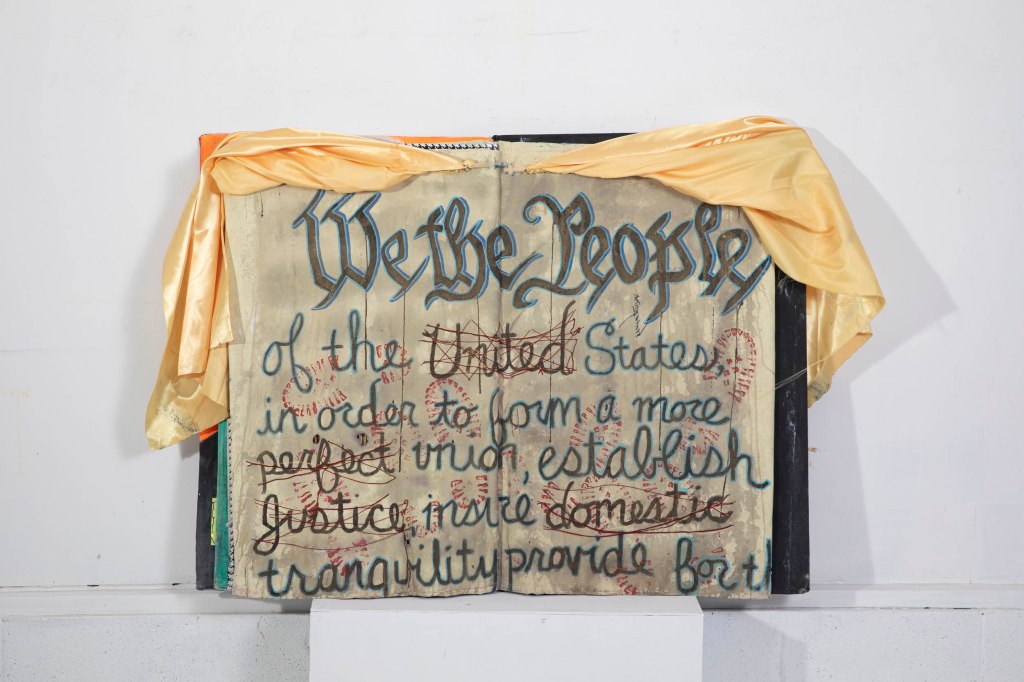 We the People
of the United States,
in order to form a more
perfect vnion, establish
Justice, insure domestic
tranquility provide for th